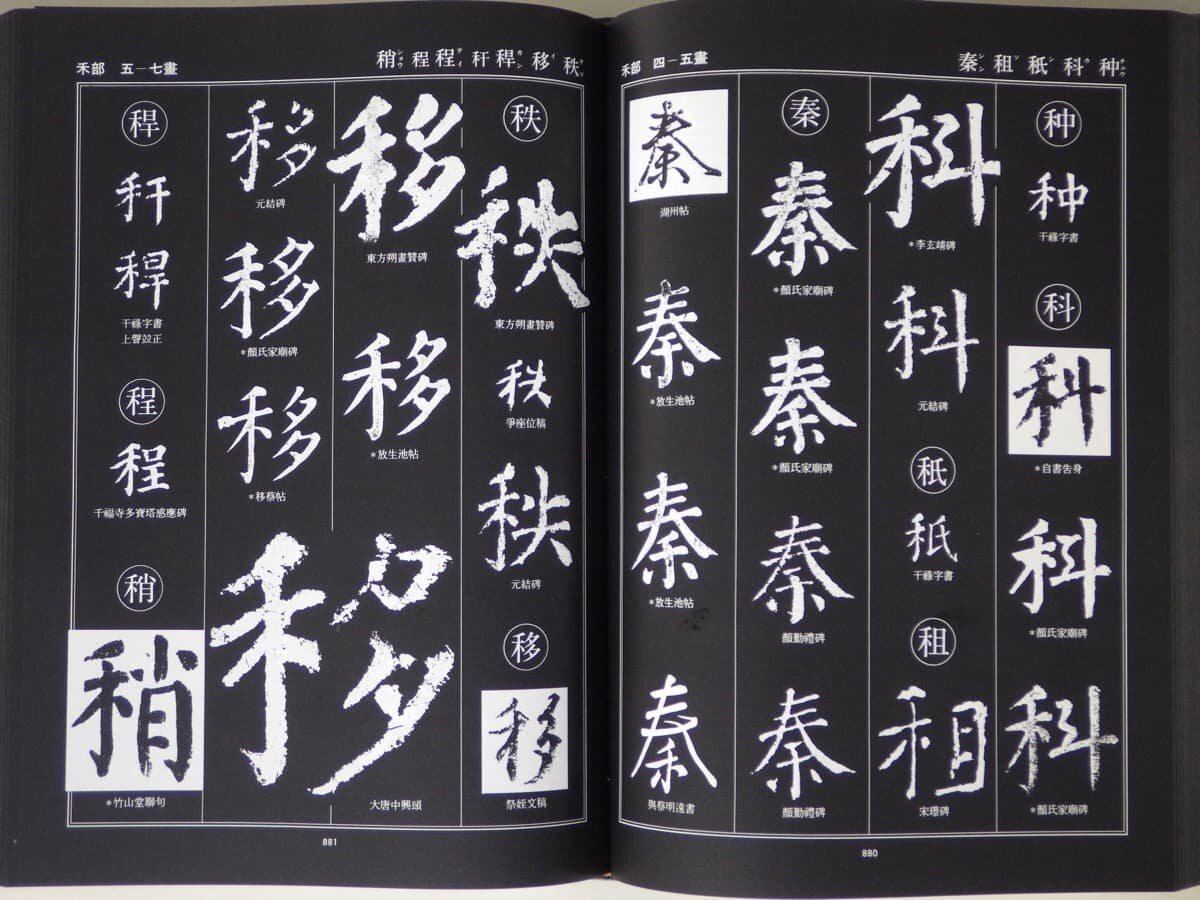 种 科 秖 租 秦
禾部 四―五畫
种
种
干祿字書
科
科
*自書告身
科
*顏氏家廟碑
科
*顏氏家廟碑
科
*李玄靖碑
科
元結碑
秖
秖
干祿字書
租
租
宋璟碑
秦
秦
*顏氏家廟碑
秦
*顏氏家廟碑
秦
顏勤禮碑
秦
顏勤禮碑
秦
湖州帖
秦
*放生池帖
秦
*放生池帖
秦
與蔡明遠書
880
秩 移 稈 秆 程 程 稍
禾部 五―七畫
秩
秩
東方朔畫贊碑
秩
爭座位稿
秩
元結碑
移
移
祭姪文稿
移
東方朔畫贊碑
移
*放生池帖
移
大唐中興頌
移
元結碑
移
*顏氏家廟碑
移
*移蔡帖
稈
秆
稈
干祿字書
上聲竝正
程
程
千福寺多寶塔感應碑
稍
稍
*竹山堂聯句
881